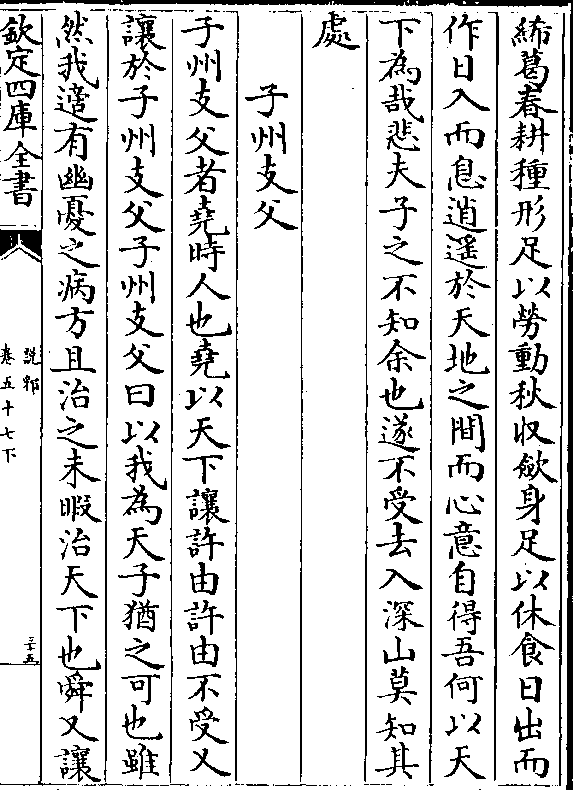 絺葛春耕種形足以勞動秋収斂身足以休食日出而
作日入而息逍遥於天地之間而心意自得吾何以天
下為哉悲夫子之不知余也遂不受去入深山莫知其
處
子州支父
子州支父者堯時人也堯以天下讓許由許由不受又
讓於子州支父子州支父曰以我為天子猶之可也雖
然我適有幽憂之病方且治之未暇治天下也舜又讓
欽定四庫全書
說郛
卷五十七下
三十五